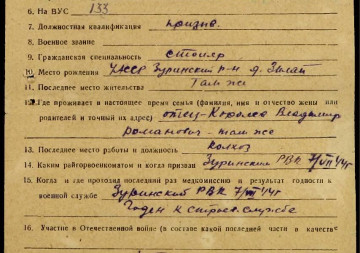 6. На ВУС 133
7. Должностная квалификация призыв.
8. Военное звание
9. Гражданская специальность столяр
10. Место рождения УАССР Зуринский р-н д.
11. Последнее место жительства Там же
12. Где проживает в настоящее время семья (фамилия, имя и отчество жены или
родителей и точный их адрес) отец- Владимир
Романович - там же
13. Последнее место работы и должность Колхоз
14. Каким райгорвоенкоматом и когда призван Зуринский РВК 7/VII 14г
15. Когда и где проходил последний раз медкомиссию и результат годности к
военной службе Зуринский РВК 7/VII 14г
Годен к строев. службе
16. Участие в Отечественной войне (в составе какой последней части и в качестве